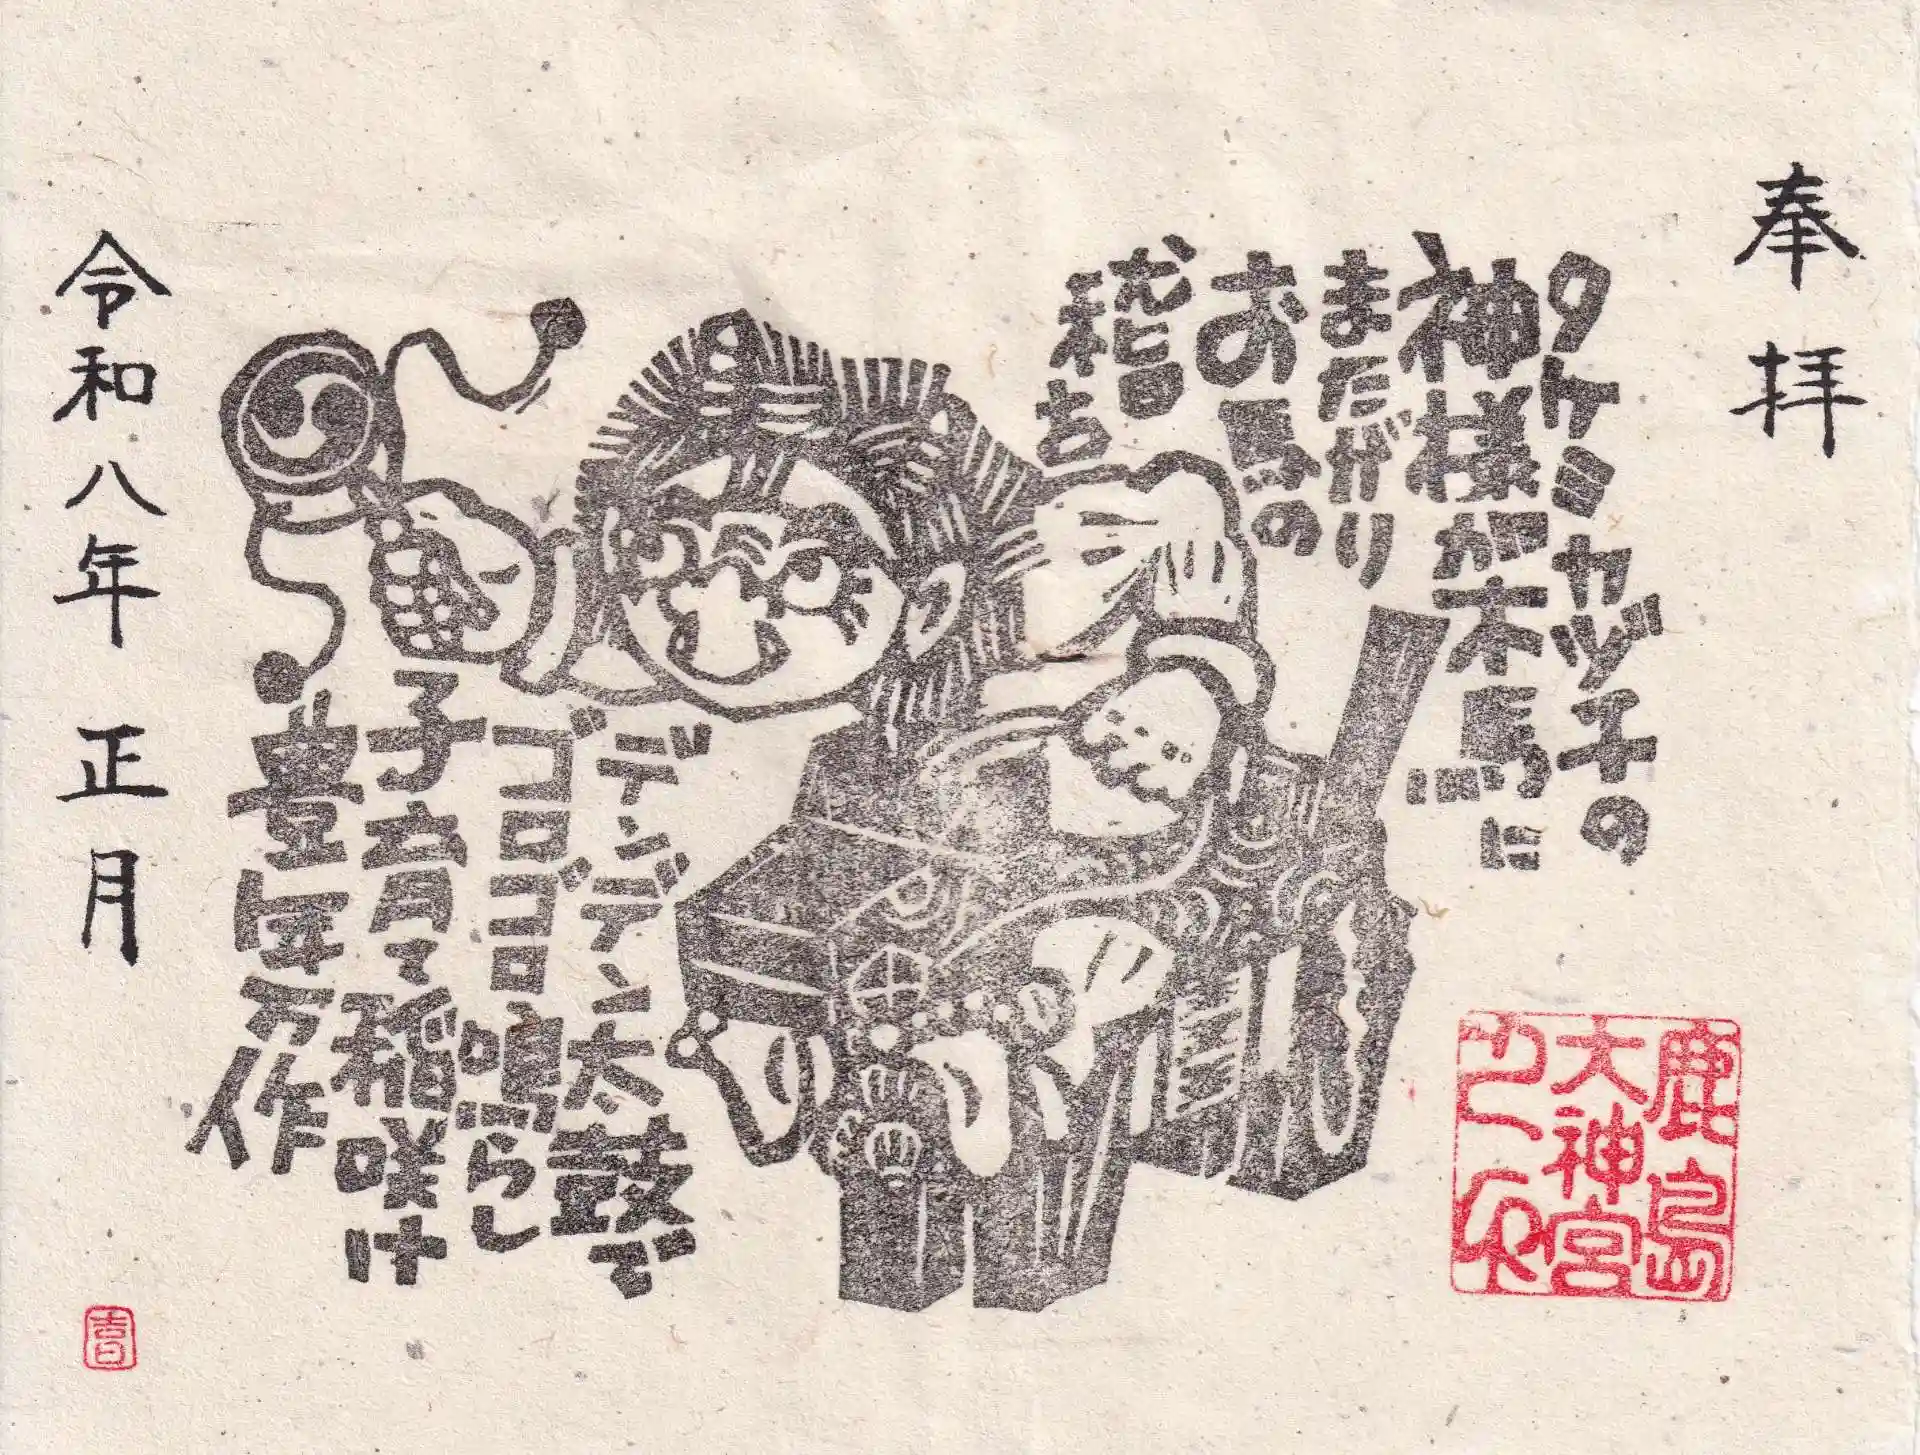 奉拝
タケミカヅチの
神様が木馬に
まだがり
お馬の
稽古
デンデン太鼓で
ゴロゴロ鳴らし
子育て稲咲け
豊年万作
令和八年 正月
鹿島
大神宮